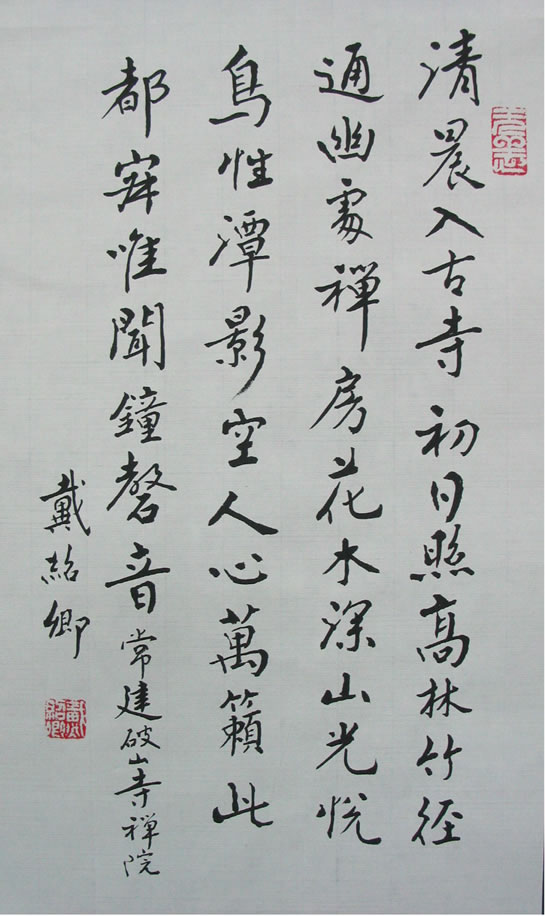 清晨入古寺初日照高林竹徑
通幽處禪房花木深山光悅
鳥性潭影空人心萬籟此
都寂唯聞鐘磬音常建破山寺禪院
戴紹卿
戴紹卿